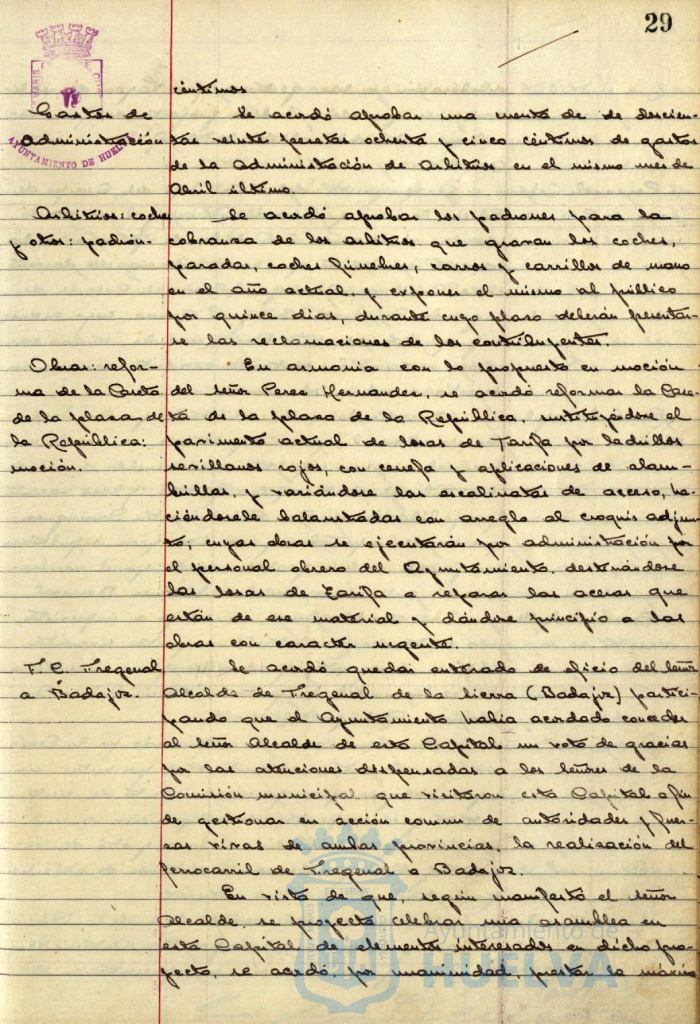 29
céntimos
Gastos de
Administración
AYUNTAMIENTO DE HUELVA
Se acordó aprobar una cuenta de de doscien-
tas veinte pesetas ochenta y cinco céntimos de gastos
de la Administración de Arbitrios en el mismo mes de
Abril último.
Arbitrios: coches
y otros: padrón.
Se acordó aprobar los padrones para la
cobranza de los arbitrios que gravan los coches,
paradas, coches fúnebres, carros y carrillos de mano
en el año actual, y exponer el mismo al público
por quince dias, durante cuyo plazo deberán presentar-
se las reclamaciones de los contribuyentes.
Obras: refor-
ma de la Caseta
de la plaza de
la República:
moción.
En armonia con lo propuesto en moción
del señor Perez Hernandez, se acordó reformar la Case-
ta de la plaza de la República, sustituyéndose el
pavimento actual de losas de Tarifa por ladrillos
sevillanos rojos, con cenefa y aplicaciones de alam-
brillas, y variándose las escalinatas de acceso, ha-
ciéndosele balaustradas con arreglo al croquis adjun-
to; cuyas obras se ejecutarán por administración por
el personal obrero del Ayuntamiento, destinándose
las losas de Tarifa a reparar las aceras que
están de ese material y dándose principio a las
obras con caracter urgente.
F. C. Fregenal
a Badajoz.
Se acordó quedar enterado de oficio del señor
Alcalde de Fregenal de la Sierra (Badajoz) partici-
pando que el Ayuntamiento habia acordado conceder
al señor Alcalde de esta Capital un voto de gracias
por las atenciones dispensadas a los señores de la
Comisión municipal que visitaron esta Capital a fin
de gestionar en acción comun de autoridades y fuer-
zas vivas de ambas provincias, la realización del
ferrocarril de Fregenal a Badajoz.
En vista de que, según manifestó el señor
Alcalde, se proyecta celebrar una asamblea en
esta Capital de elementos interesados en dicho pro-
yecto, se acordó, por unanimidad, prestar la máxima
Ayuntamiento de
HUELVA